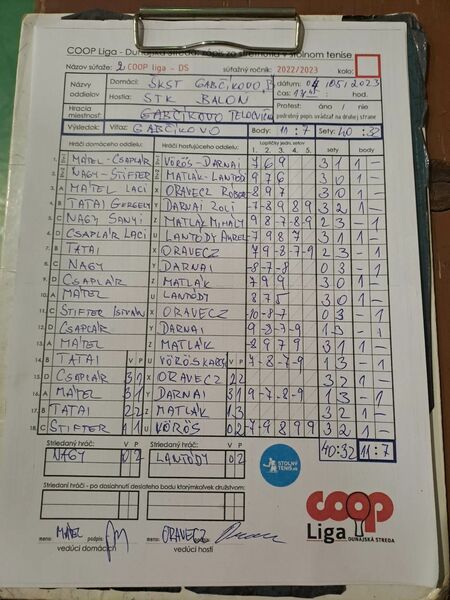 COOP Liga - Dunajská Streda, zápis zo stretnutia v stolnom tenise
Názov súťaže: 2 COOP liga - DS súťažný ročník: 2022/2023 kolo:
Názvy oddielov Domáci: ŠKST GABČÍKOVO B dátum: 2023
Hostia: STK BALON čas: hod.
Hracia miestnosť: GABČÍKOVO Protest: áno / nie
podrobný popis uvádzať na druhej strane
Výsledok: Víťaz: GABČÍKOVO Body: 11:7 Sety: 40:32
Hráči domáceho oddielu: Hráči hosťujúceho oddielu: Loptičky jedn. setov sety body
1. 2. 3. 4. 5.
1. MÁTEL-CSAPLÁR VÖRÖS-DARNAI 3 1 1 -
2. NAGY-STIFTER MATLÁK-LANTÓDY 9 7 6 3 0 1 -
3. A MÁTEL LACI X ORAVECZ 8 9 7 3 0 1 -
4. B TATAI GERGELY Y DARNAI ZOLI 7 -8 9 8 9 3 2 1 -
5. C NAGY SANYI Z MATLÁK MIHÁLY 9 8 -7 -8 -9 2 3 - 1
6. D CSAPLÁR LACI U LANTÓDY 3 1 1 -
7. B TATAI X ORAVECZ 2 3 - 1
8. C NAGY Y DARNAI -8 -7 -8 0 3 - 1
9. D CSAPLÁR Z MATLÁK 7 9 9 3 0 1 -
10. A MÁTEL U LANTÓDY 8 7 5 3 0 1 -
11. C STIFTER ISTVÁN X ORAVECZ -10 -8 -7 0 3 - 1
12. D CSAPLÁR Y DARNAI 9 -8 -7 -9 1 3 - 1
13. A MÁTEL Z MATLÁK 3 1 1 -
14. B TATAI V P U VÖRÖS V P 7 -8 -7 -9 1 3 - 1
15. D CSAPLÁR 3 1 X ORAVECZ 2 2 3 2 1 -
16. A MÁTEL Y DARNAI 3 1 9 -7 -8 -9 1 3 - 1
17. B TATAI 2 2 Z MATLÁK 1 3 3 2 1 -
18. C STIFTER 1 1 U VÖRÖS 0 2 -7 9 8 9 9 3 2 1 -
Striedaný hráč: V P Striedaný hráč: V P 40:32 11:7
NAGY 0 2 LANTÓDY 0 2
STOLNÝ TENIS.sk
Striedaní hráči - po dosiahnutí desiateho bodu ktorýmkoľvek družstvom:
COOP
Liga DUNAJSKÁ STREDA
meno: MÁTEL podpis meno: ORAVECZ podpis
vedúci domácich vedúci hostí